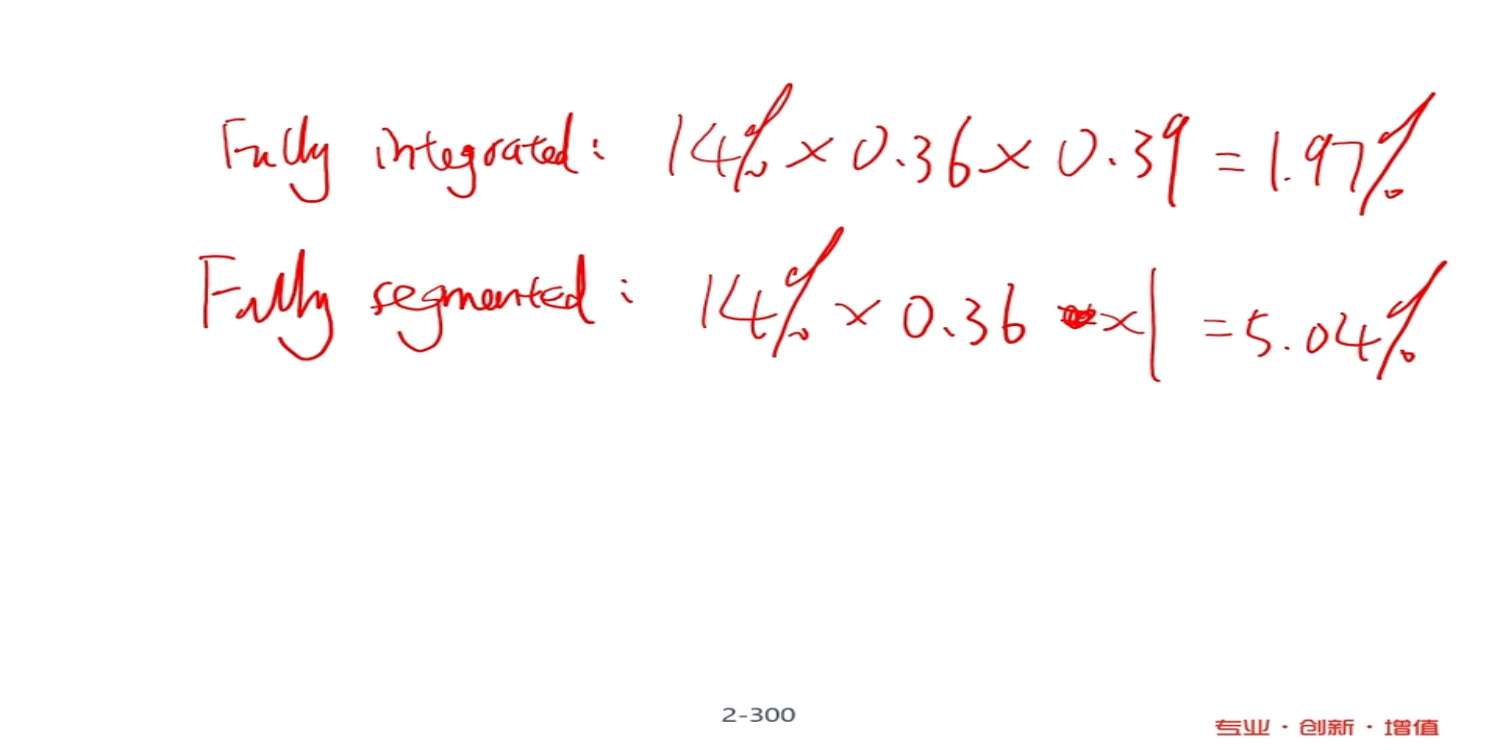 Fully integrated: 14% × 0.36 × 0.39 = 1.97%
Fully segmented: 14% × 0.36 × 1 = 5.04%
2-300
专业·创新·增值